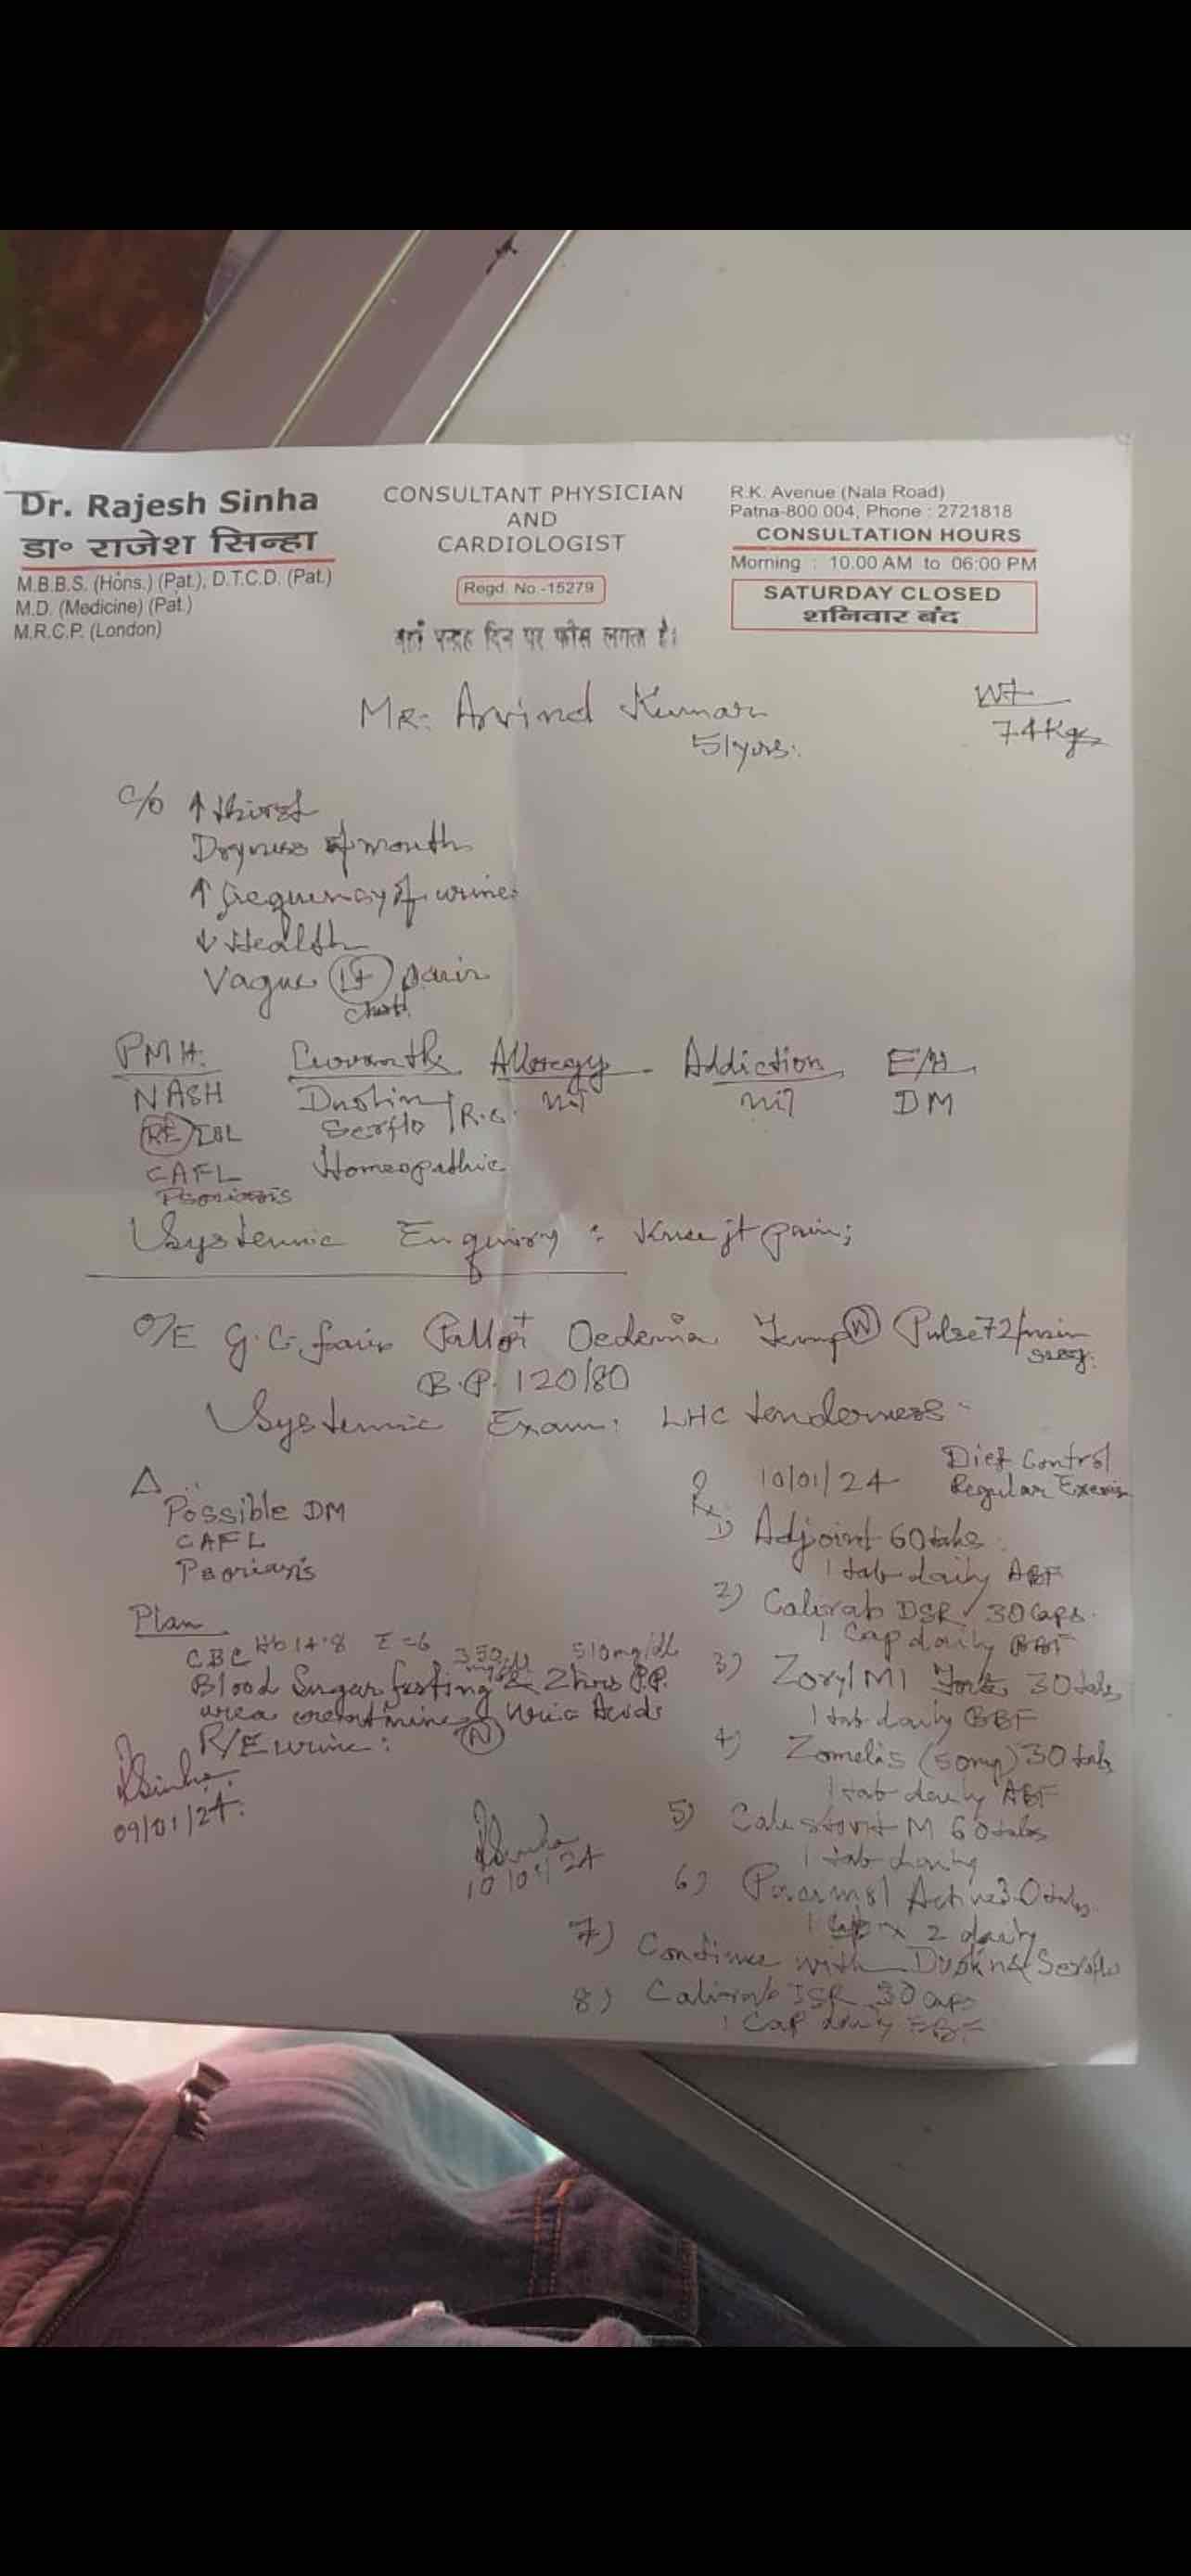 Dr. Rajesh Sinha
डा० राजेश सिन्हा
M.B.B.S. (Hons.) (Pat.), D.T.C.D. (Pat.)
M.D. (Medicine) (Pat.)
M.R.C.P. (London)
CONSULTANT PHYSICIAN
AND
CARDIOLOGIST
Regd. No.-15279
यहाँ पन्द्रह दिन पर फीस लगता है।
R.K. Avenue (Nala Road)
Patna-800 004, Phone : 2721818
CONSULTATION HOURS
Morning : 10.00 AM to 06:00 PM
SATURDAY CLOSED
शनिवार बंद
MR. Arvind Kumar
51yrs.
Wt
74Kgs
C/o ↑ thirst
Dryness of mouth
↑ frequency of urine
↓ Health
Vague Lt pain
chest
PMH. Allergy Addiction F/H
NASH nil nil DM
RE
CAFL Homeopathic
Psoriasis
Systemic Enquiry : Knee jt pain;
O/E G.C. fair Pallor + Oedema Temp N Pulse 72/min
reg.
B.P. 120/80
Systemic Exam: LHC tenderness
Δ
Possible DM
CAFL
Psoriasis
Plan
CBC Hb 14.8 E=6 510mg/dl
Blood Sugar fasting & 2hrs P.P.
urea creatinine Uric Acids
R/E urine: N
RSinha
09/01/24
RSinha
10/01/24
Rx 10/01/24 Diet Control
Regular Exercise
1) Adjoint 60 tabs
1 tab daily ABF
2) DSR 30 Caps.
1 Cap daily BBF
3) Zoryl M1 Forte 30 tabs
1 tab daily BBF
4) Zomelis (50mg) 30 tabs
1 tab daily ABF
5) M 60 tabs
1 tab daily
6) Active 30 tabs
2 daily
7) Continue with &
8) 30 Caps
1 Cap daily